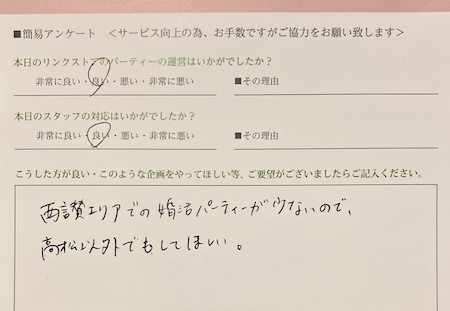 ■簡易アンケート　＜サービス向上の為、お手数ですがご協力をお願い致します＞
本日のリンクストアのパーティーの運営はいかがでしたか？
非常に良い・良い・悪い・非常に悪い　■その理由
本日のスタッフの対応はいかがでしたか？
非常に良い・良い・悪い・非常に悪い　■その理由
こうした方が良い・このような企画をやってほしい等、ご要望がございましたらご記入ください。
西讃エリアでの婚活パーティーが少ないので、
高松以外でもしてほしい。